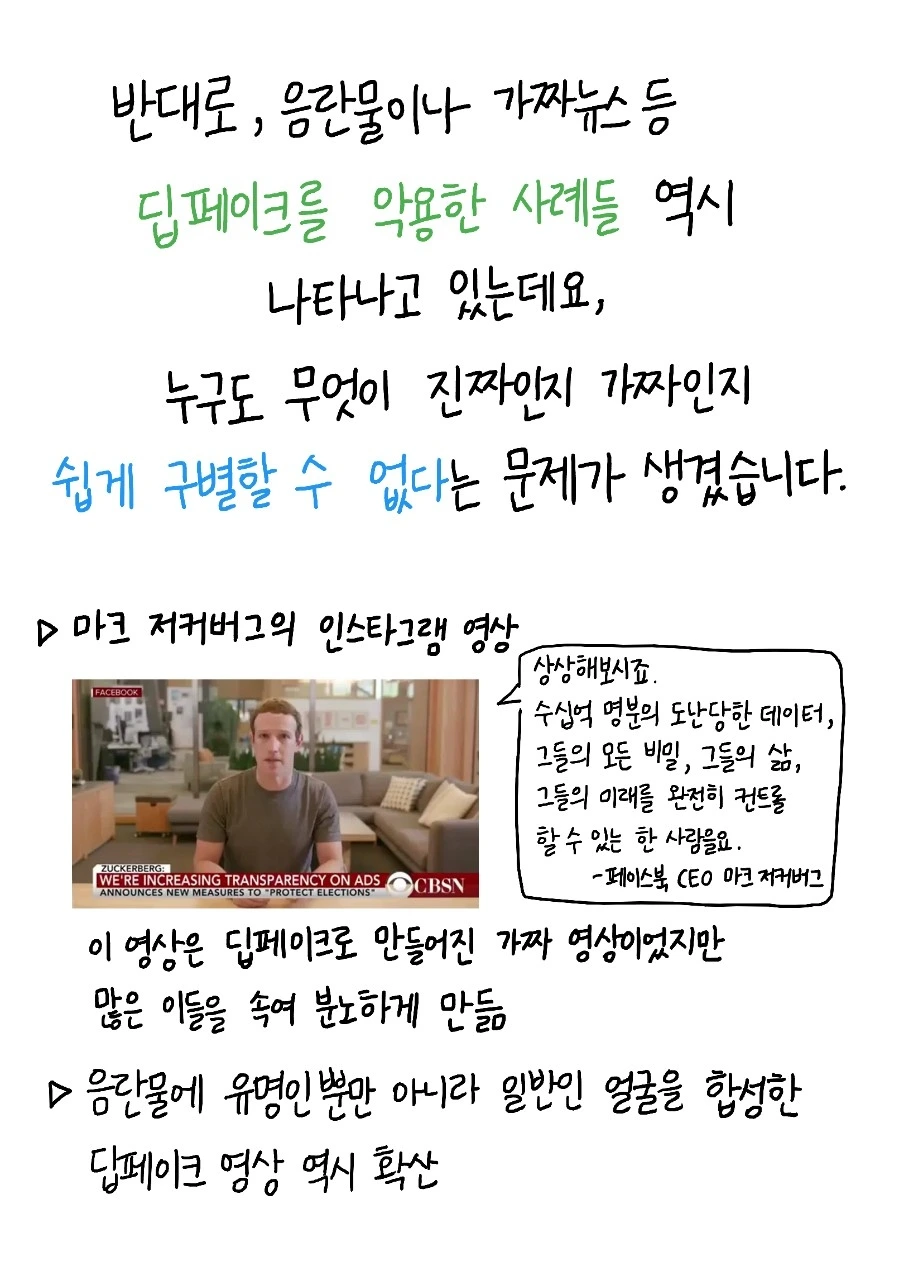 반대로, 음란물이나 가짜뉴스 등
딥페이크를 악용한 사례들 역시
나타나고 있는데요,
누구도 무엇이 진짜인지 가짜인지
쉽게 구별할 수 없다는 문제가 생겼습니다.
▷ 마크 저커버그의 인스타그램 영상
FACEBOOK
ZUCKERBERG:
WE'RE INCREASING TRANSPARENCY ON ADS
ANNOUNCES NEW MEASURES TO "PROTECT ELECTIONS"
CBSN
상상해보시죠.
수십억 명분의 도난당한 데이터,
그들의 모든 비밀, 그들의 삶,
그들의 미래를 완전히 컨트롤
할 수 있는 한 사람을요.
-페이스북 CEO 마크 저커버그
이 영상은 딥페이크로 만들어진 가짜 영상이었지만
많은 이들을 속여 분노하게 만듦
▷ 음란물에 유명인뿐만 아니라 일반인 얼굴을 합성한
딥페이크 영상 역시 확산